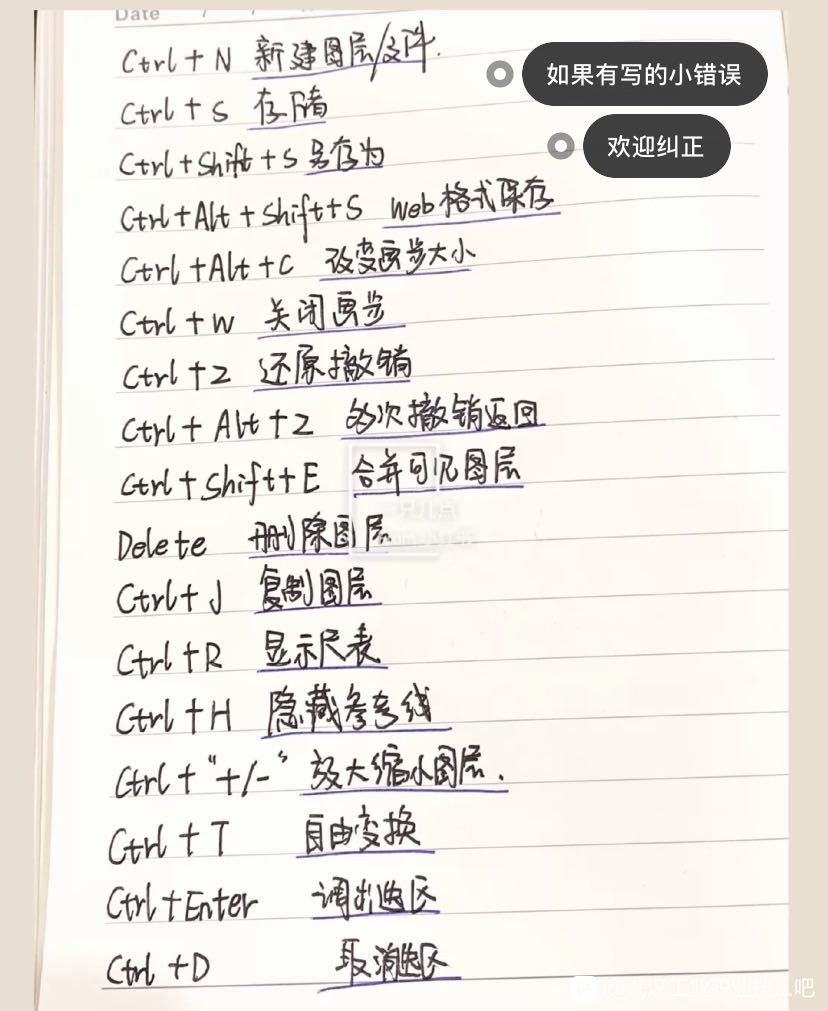 Date / /
Ctrl + N 新建图层/文件.
如果有写的小错误
Ctrl + S 存储
欢迎纠正
Ctrl+Shift+S 另存为
Ctrl+Alt+Shift+S Web格式保存
Ctrl+Alt+C 改变画步大小
Ctrl+W 关闭画步
Ctrl+Z 还原撤销
Ctrl+Alt+Z 多次撤销返回
Ctrl+Shift+E 合并可见图层
Delete 删除图层
Ctrl+J 复制图层
Ctrl+R 显示尺表
Ctrl+H 隐藏参考线
Ctrl+"+/-" 放大缩小图层.
Ctrl+T 自由变换
Ctrl+Enter 调出选区
Ctrl+D 取消选区
@武汉工业职业技...吧